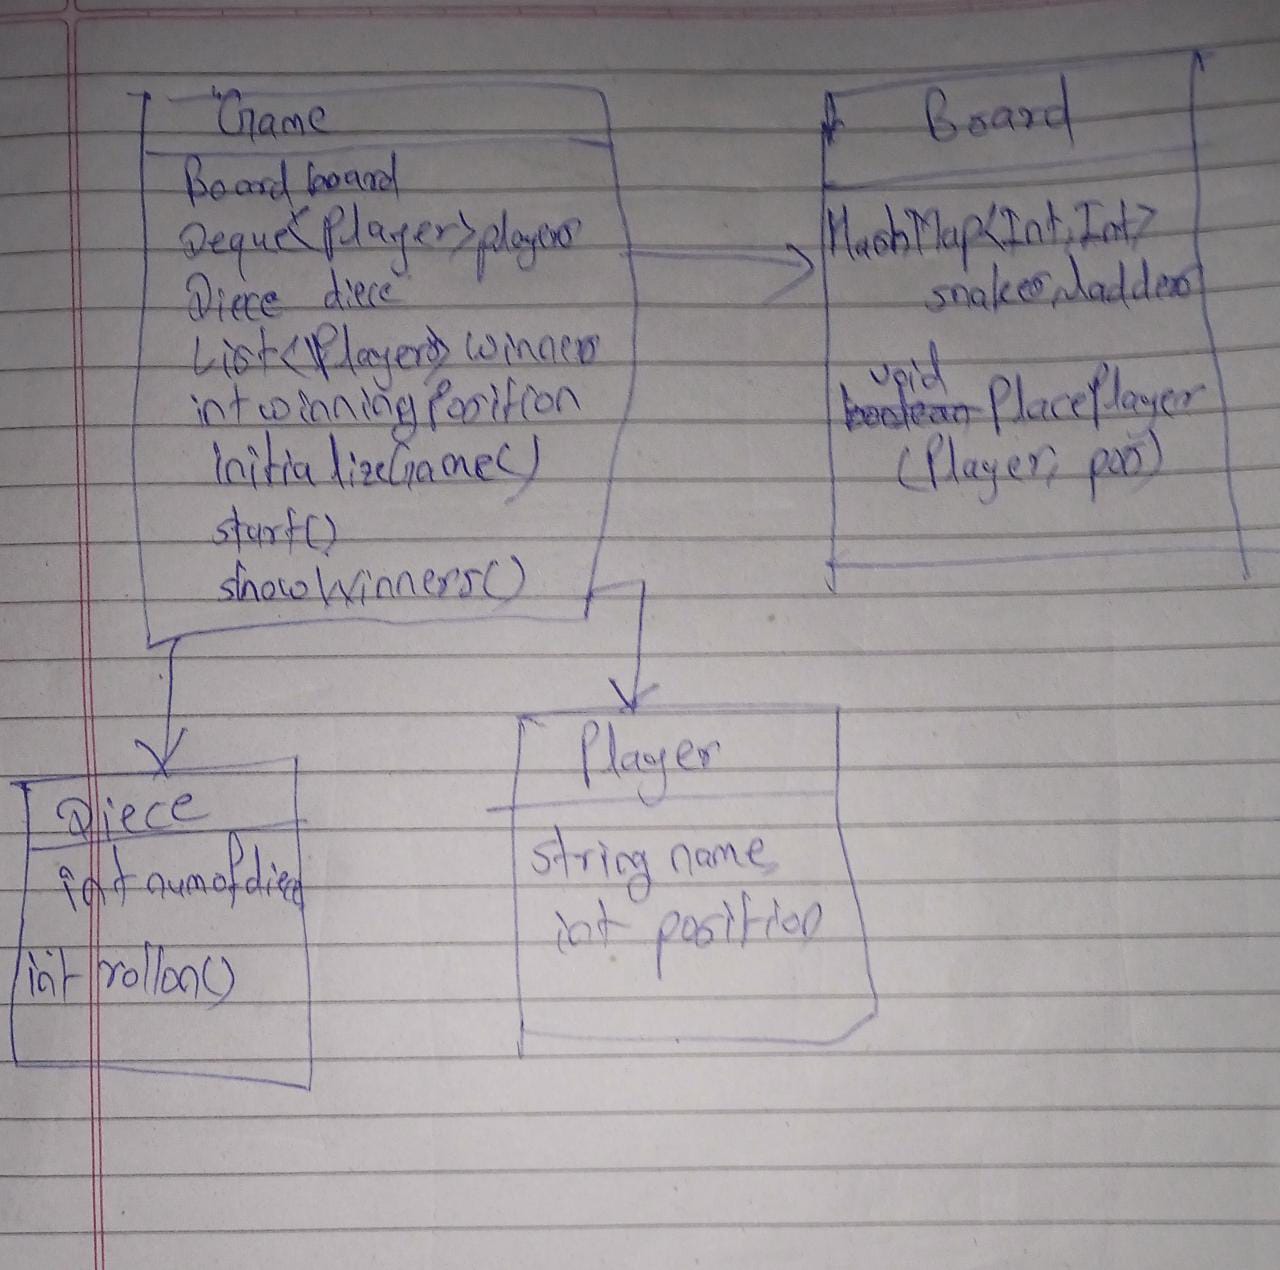 Game
Board board
Deque<Player>players
Diece diece
List<Player> winners
int winning Position
InitializeGame()
start()
showWinners()
Board
HashMap<Int, Int>
snakes, ladders
void
boolean PlacePlayer
(Player, pos)
Diece
int numofdiece
int rollon()
Player
string name
int position